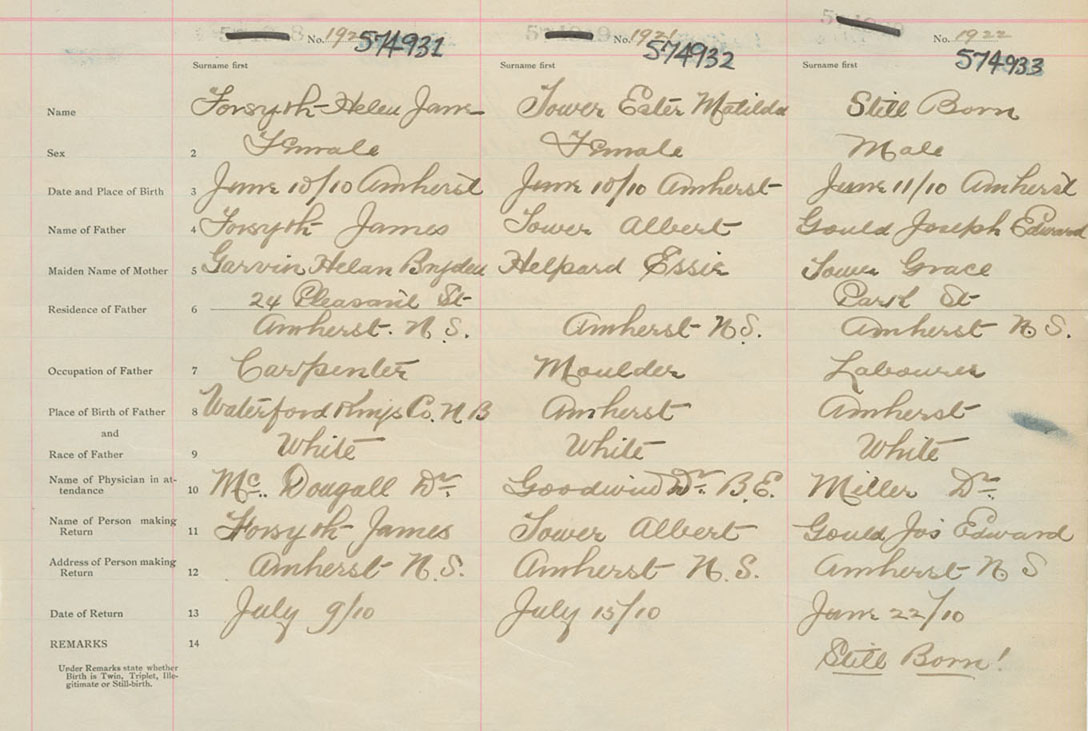 No. 192 No. 1921 No. 1922
574931 574932 574933
Surname first Surname first Surname first
Name Forsyth Helen Jane Tower Ester Matilda Still Born
Sex 2 Female Female Male
Date and Place of Birth 3 June 10/10 Amherst June 10/10 Amherst June 11/10 Amherst
Name of Father 4 Forsyth James Tower Albert Gould Joseph Edward
Maiden Name of Mother 5 Garvin Helan Bryden Helpard Essie Tower Grace
24 Pleasant St Park St
Residence of Father 6
Amherst. N.S. Amherst N.S. Amherst N.S.
Occupation of Father 7 Carpenter Moulder Labourer
Place of Birth of Father 8 Waterford Kings Co. N B Amherst Amherst
and
Race of Father 9 White White White
Name of Physician in at-
tendance 10 Mc. Dougall Dr. Goodwin Dr. B.E. Miller Dr.
Name of Person making
Return 11 Forsyth James Tower Albert Gould Jos Edward
Address of Person making
Return 12 Amherst N.S. Amherst N.S. Amherst N S
Date of Return 13 July 9/10 July 15/10 June 22/10
REMARKS 14
Still Born!
Under Remarks state whether
Birth is Twin, Triplet, Ille-
gitimate or Still-birth.